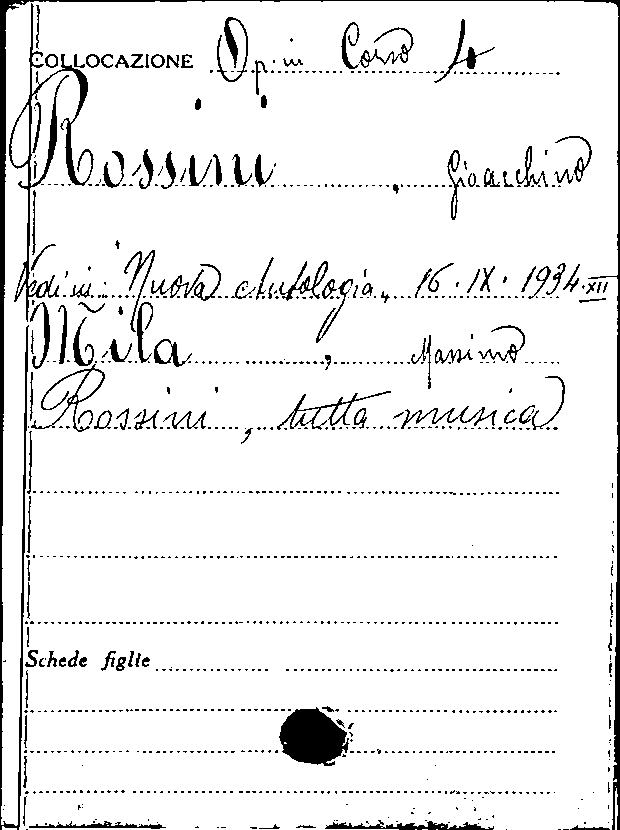 COLLOCAZIONE Op. in Corso 4
Rossini, Gioacchino
Vedi in: "Nuova Antologia" 16. IX. 1934. XII
Mila, Massimo
Rossini, tutta musica
Schede figlie